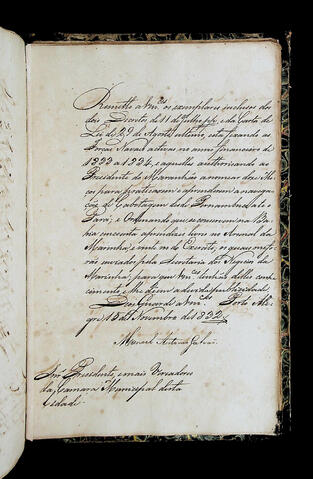 Remetto a Vm.ces os exemplares inclusos dos
dous Decretos, de 11 de Julho pp., e da Carta de
Lei de 29 de Agosto ultimo, esta fixando as
Forças Navaes activas no anno financeiro de
1833 a 1834, e aquelles authorisando ao
Presidente do Maranhão a nomear dous
para praticarem e aprenderem a navega-
ção de Cabotagem desde Pernambuco até o
Pará; e Ordenando que se conservem na Ba-
hia cincoenta aprendizes livres no Arsenal da
Marinha, e cem no do Exercito, os quaes me fo-
rão enviados pela Secretaria dos Negocios da
Marinha, para que Vm.ces tenhão delles conhe-
cimento, e lhe dem a devida publicidade.
Deos Guarde a Vm.ces Porto Ale-
gre 18 de Novembro de 1832
Manoel Antonio Galvão
Snr.es Presidente, e mais Vereadores
da Camara Municipal desta
Cidade.